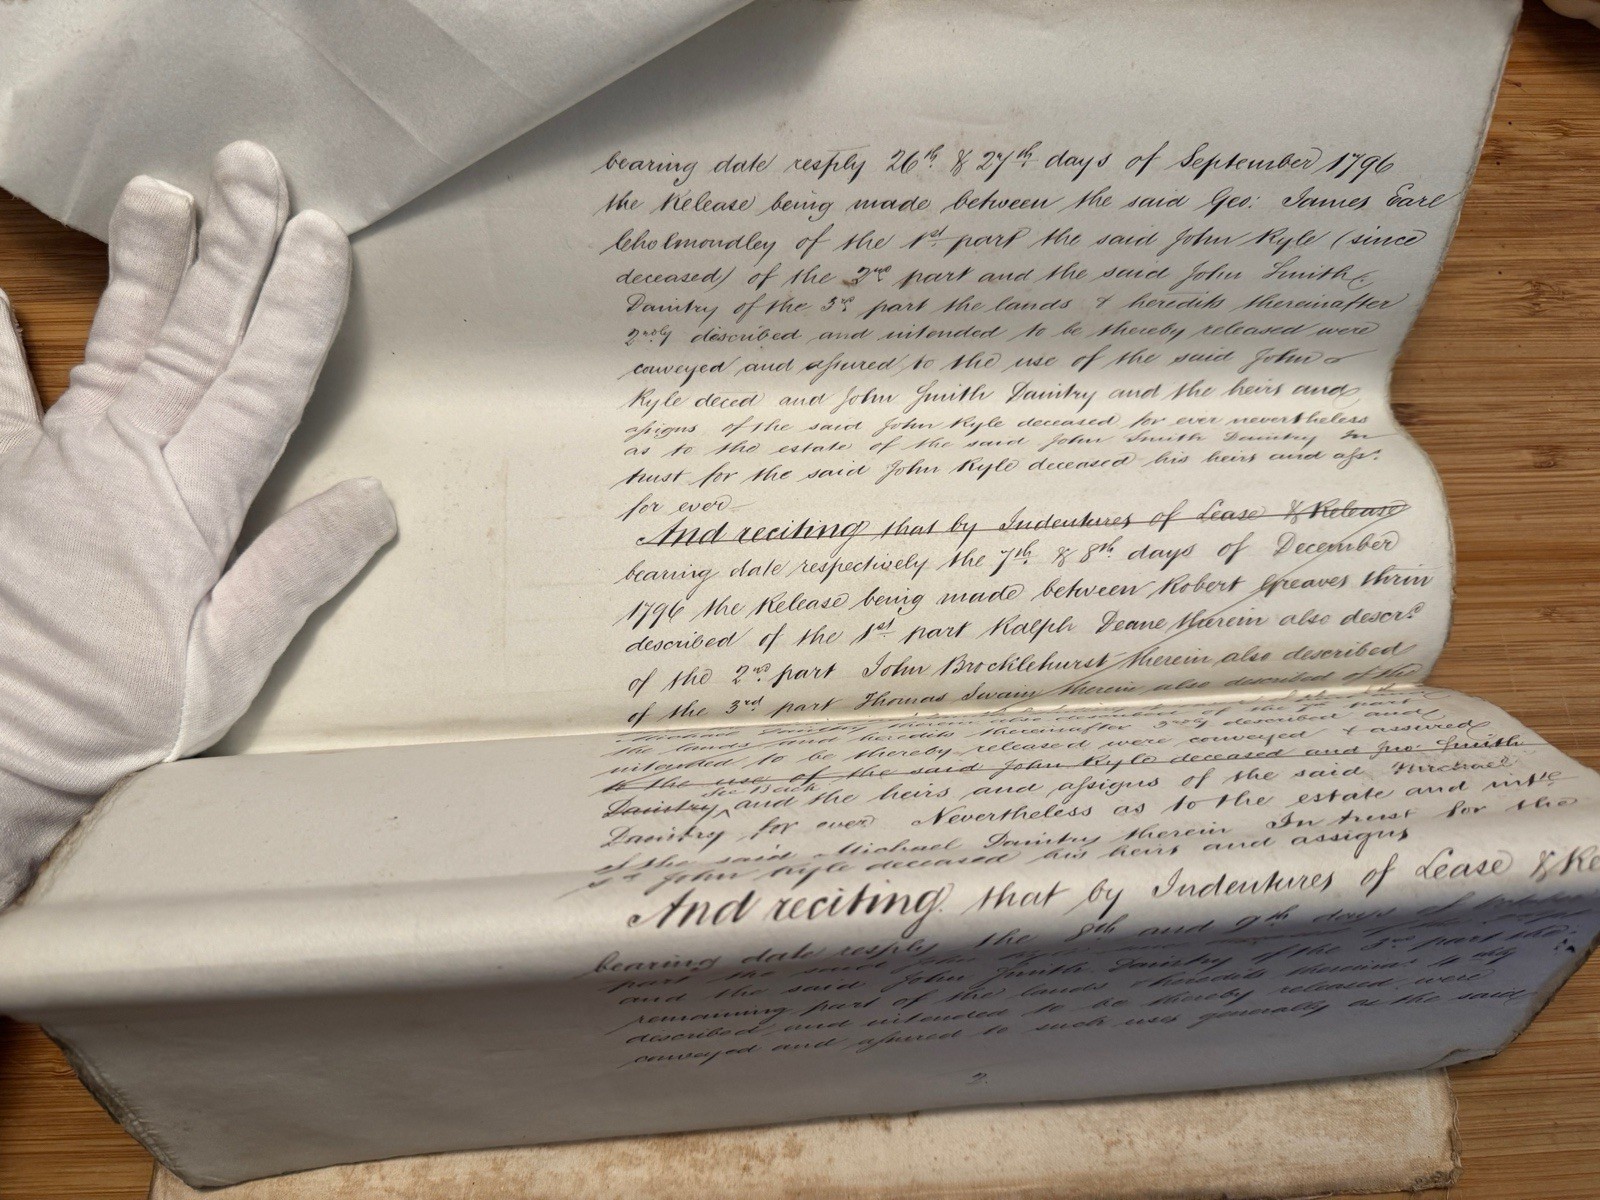 bearing date resply 26th. & 27th. days of September 1796
the Release being made between the said Geo: James Earl
Cholmondley of the 1st. part the said John Ryle (since
deceased) of the 2nd part and the said John Smith
Daintry of the 3rd part the lands & heredits thereinafter
2ndly described and intended to be thereby released were
conveyed and assured to the use of the said John
Ryle deced and John Smith Daintry and the heirs and
assigns of the said John Ryle deceased for ever nevertheless
as to the estate of the said John Smith Daintry In
trust for the said John Ryle deceased his heirs and ass:
for ever
And reciting that by Indentures of Lease & Release
bearing date respectively the 7th. & 8th. days of December
1796 the Release being made between Robert Greaves thrin
described of the 1st. part Ralph Deane therein also descrd
of the 2nd part John Brocklehurst therein also described
of the 3rd part Thomas Swain therein also described of the
Michael Daintry therein also described of the part
the lands and heredits thereinafter 3rdly described and
intended to be thereby released were conveyed & assured
to the use of the said John Ryle deceased and Jno: Smith
See Back
Daintry and the heirs and assigns of the said Michael
Daintry for ever Nevertheless as to the estate and intte
of the said Michael Daintry therein In trust for the
sd John Ryle deceased his heirs and assigns
And reciting that by Indentures of Lease & Re
bearing date resply the 8th and 9th days of
part the said John
and the said John Smith Daintry of the 3rd part the
remaining part of the lands & heredits
described and intended to be thereby released were
conveyed and assured to such uses generally as the said
2.